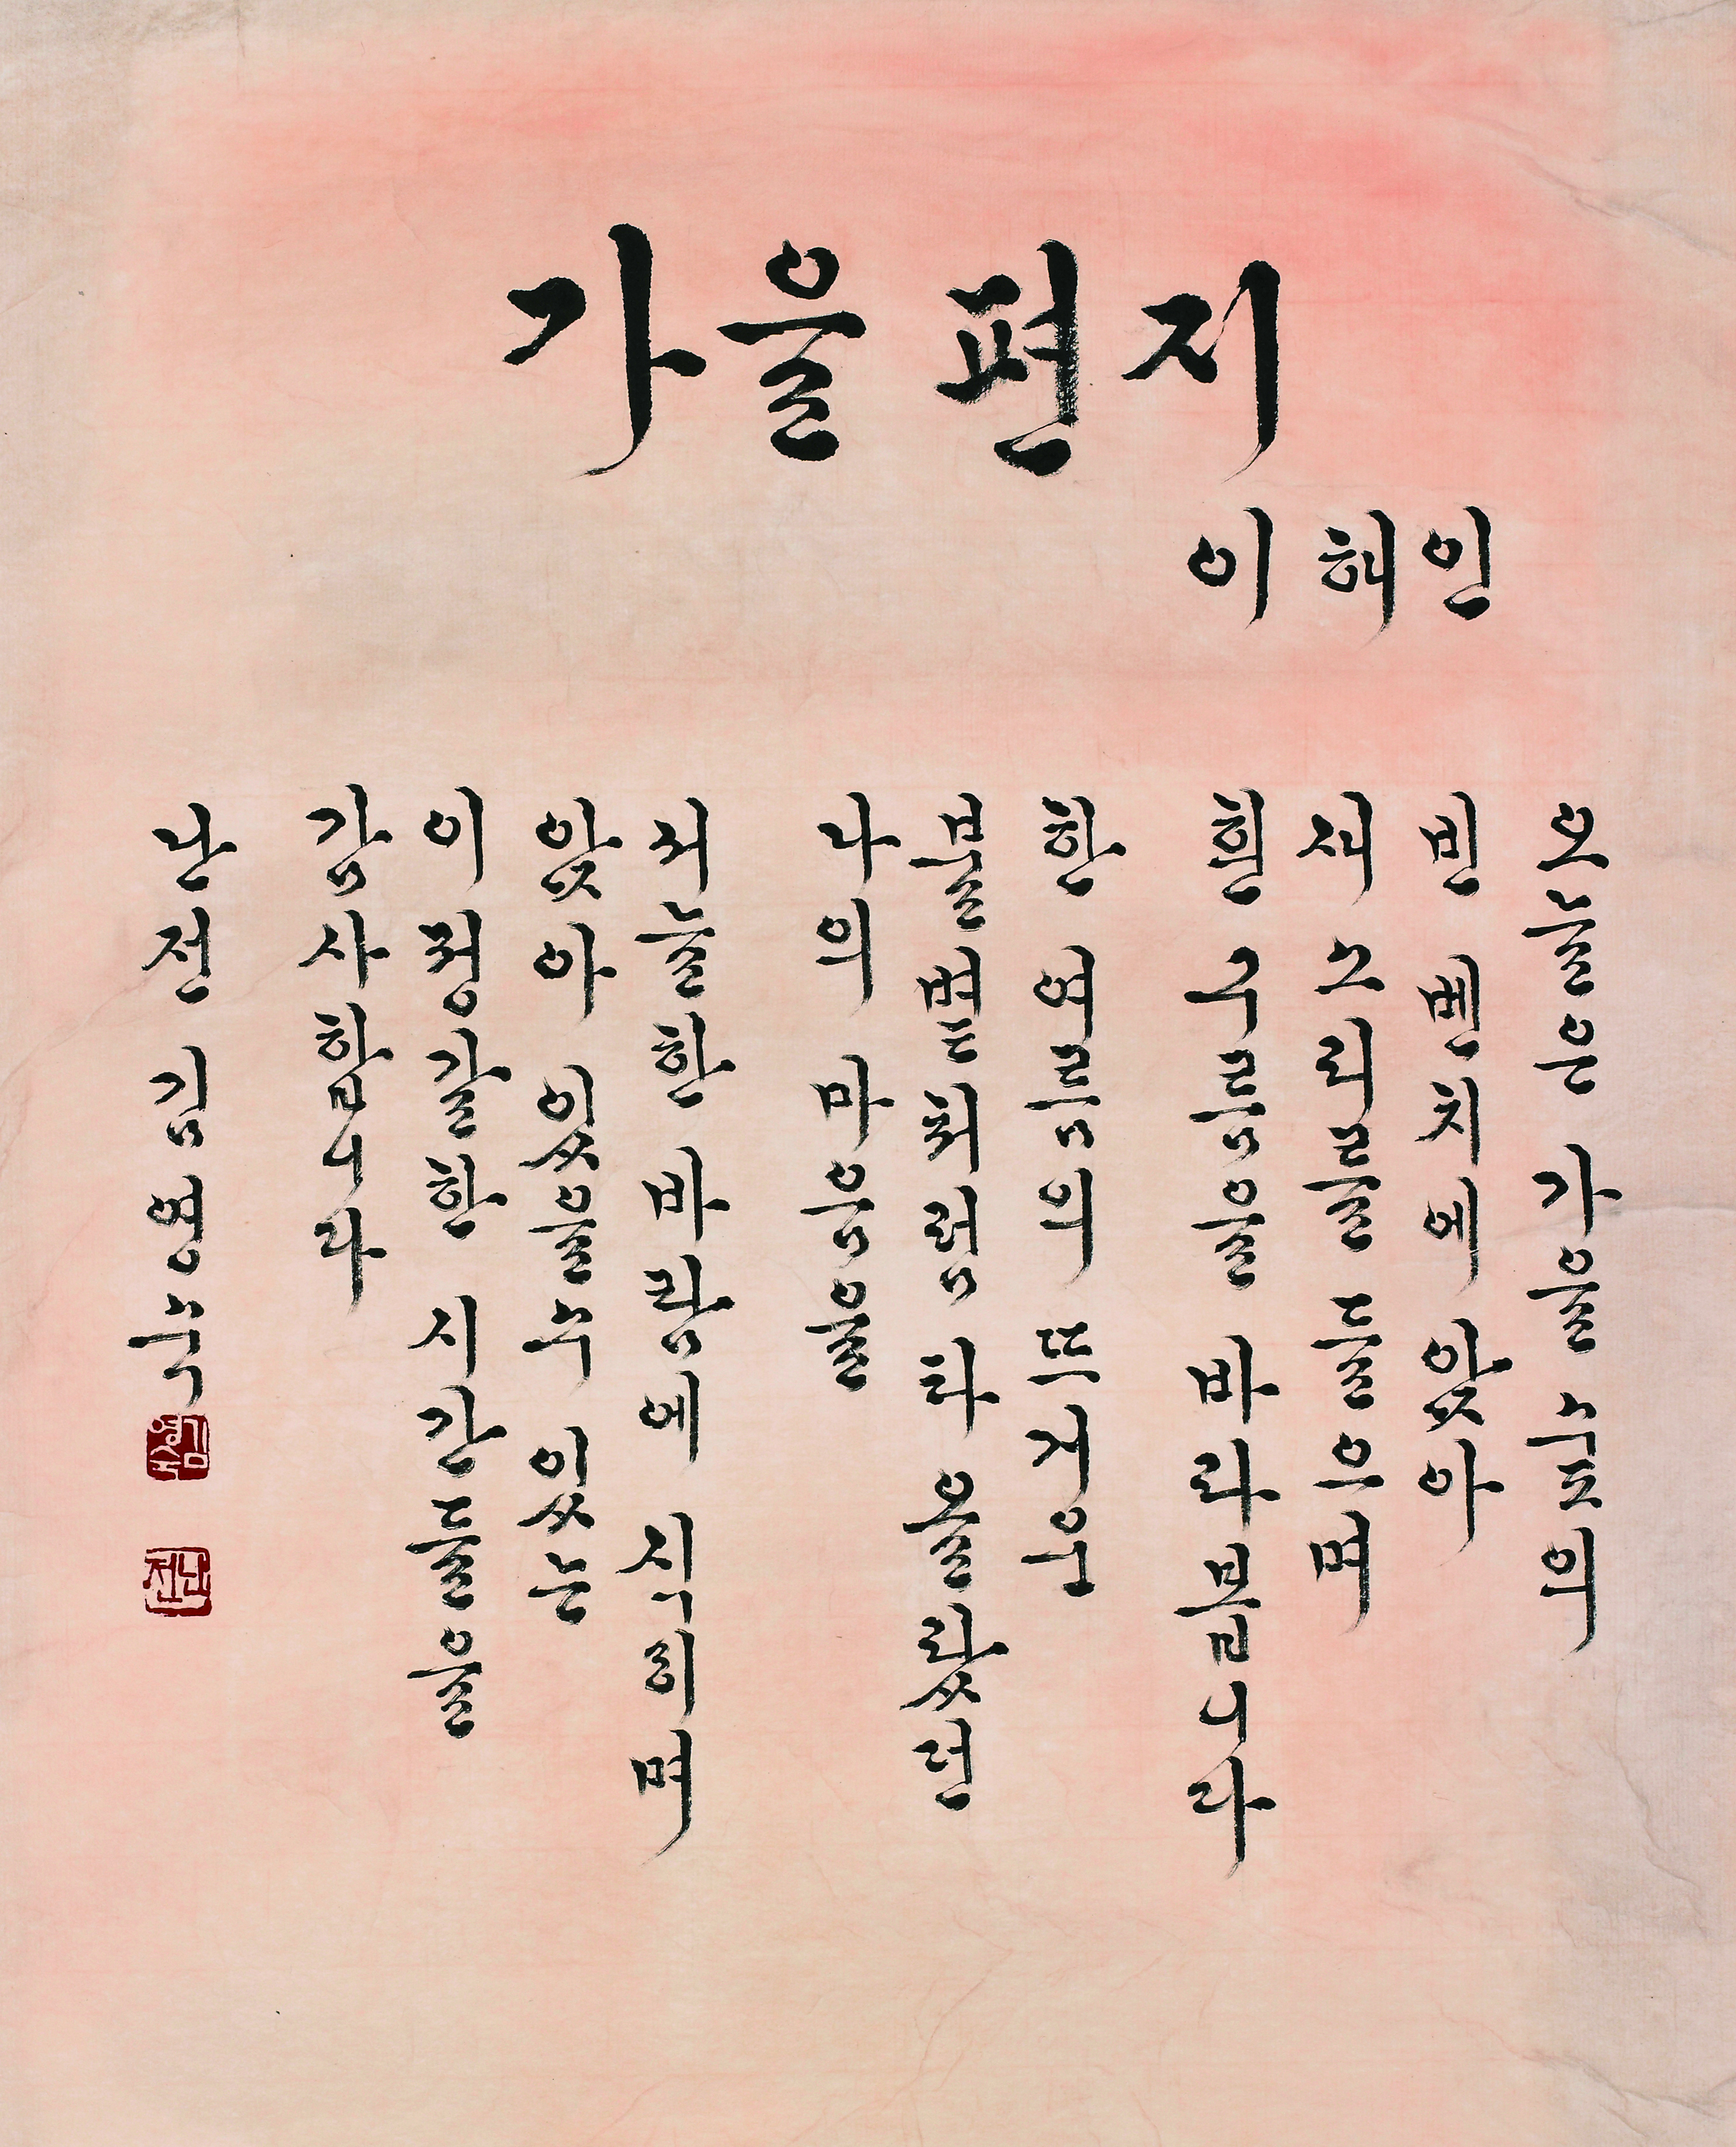 가을 편지
이해인
오늘은 가을 숲의
빈 벤치에 앉아
새 소리를 들으며
흰 구름을 바라봅니다
한 여름의 뜨거운
불볕처럼 타 올랐던
나의 마음을
서늘한 바람에 식히며
앉아 있을수 있는
이 정갈한 시간들을
감사합니다
난전 김영숙
김영숙
난전